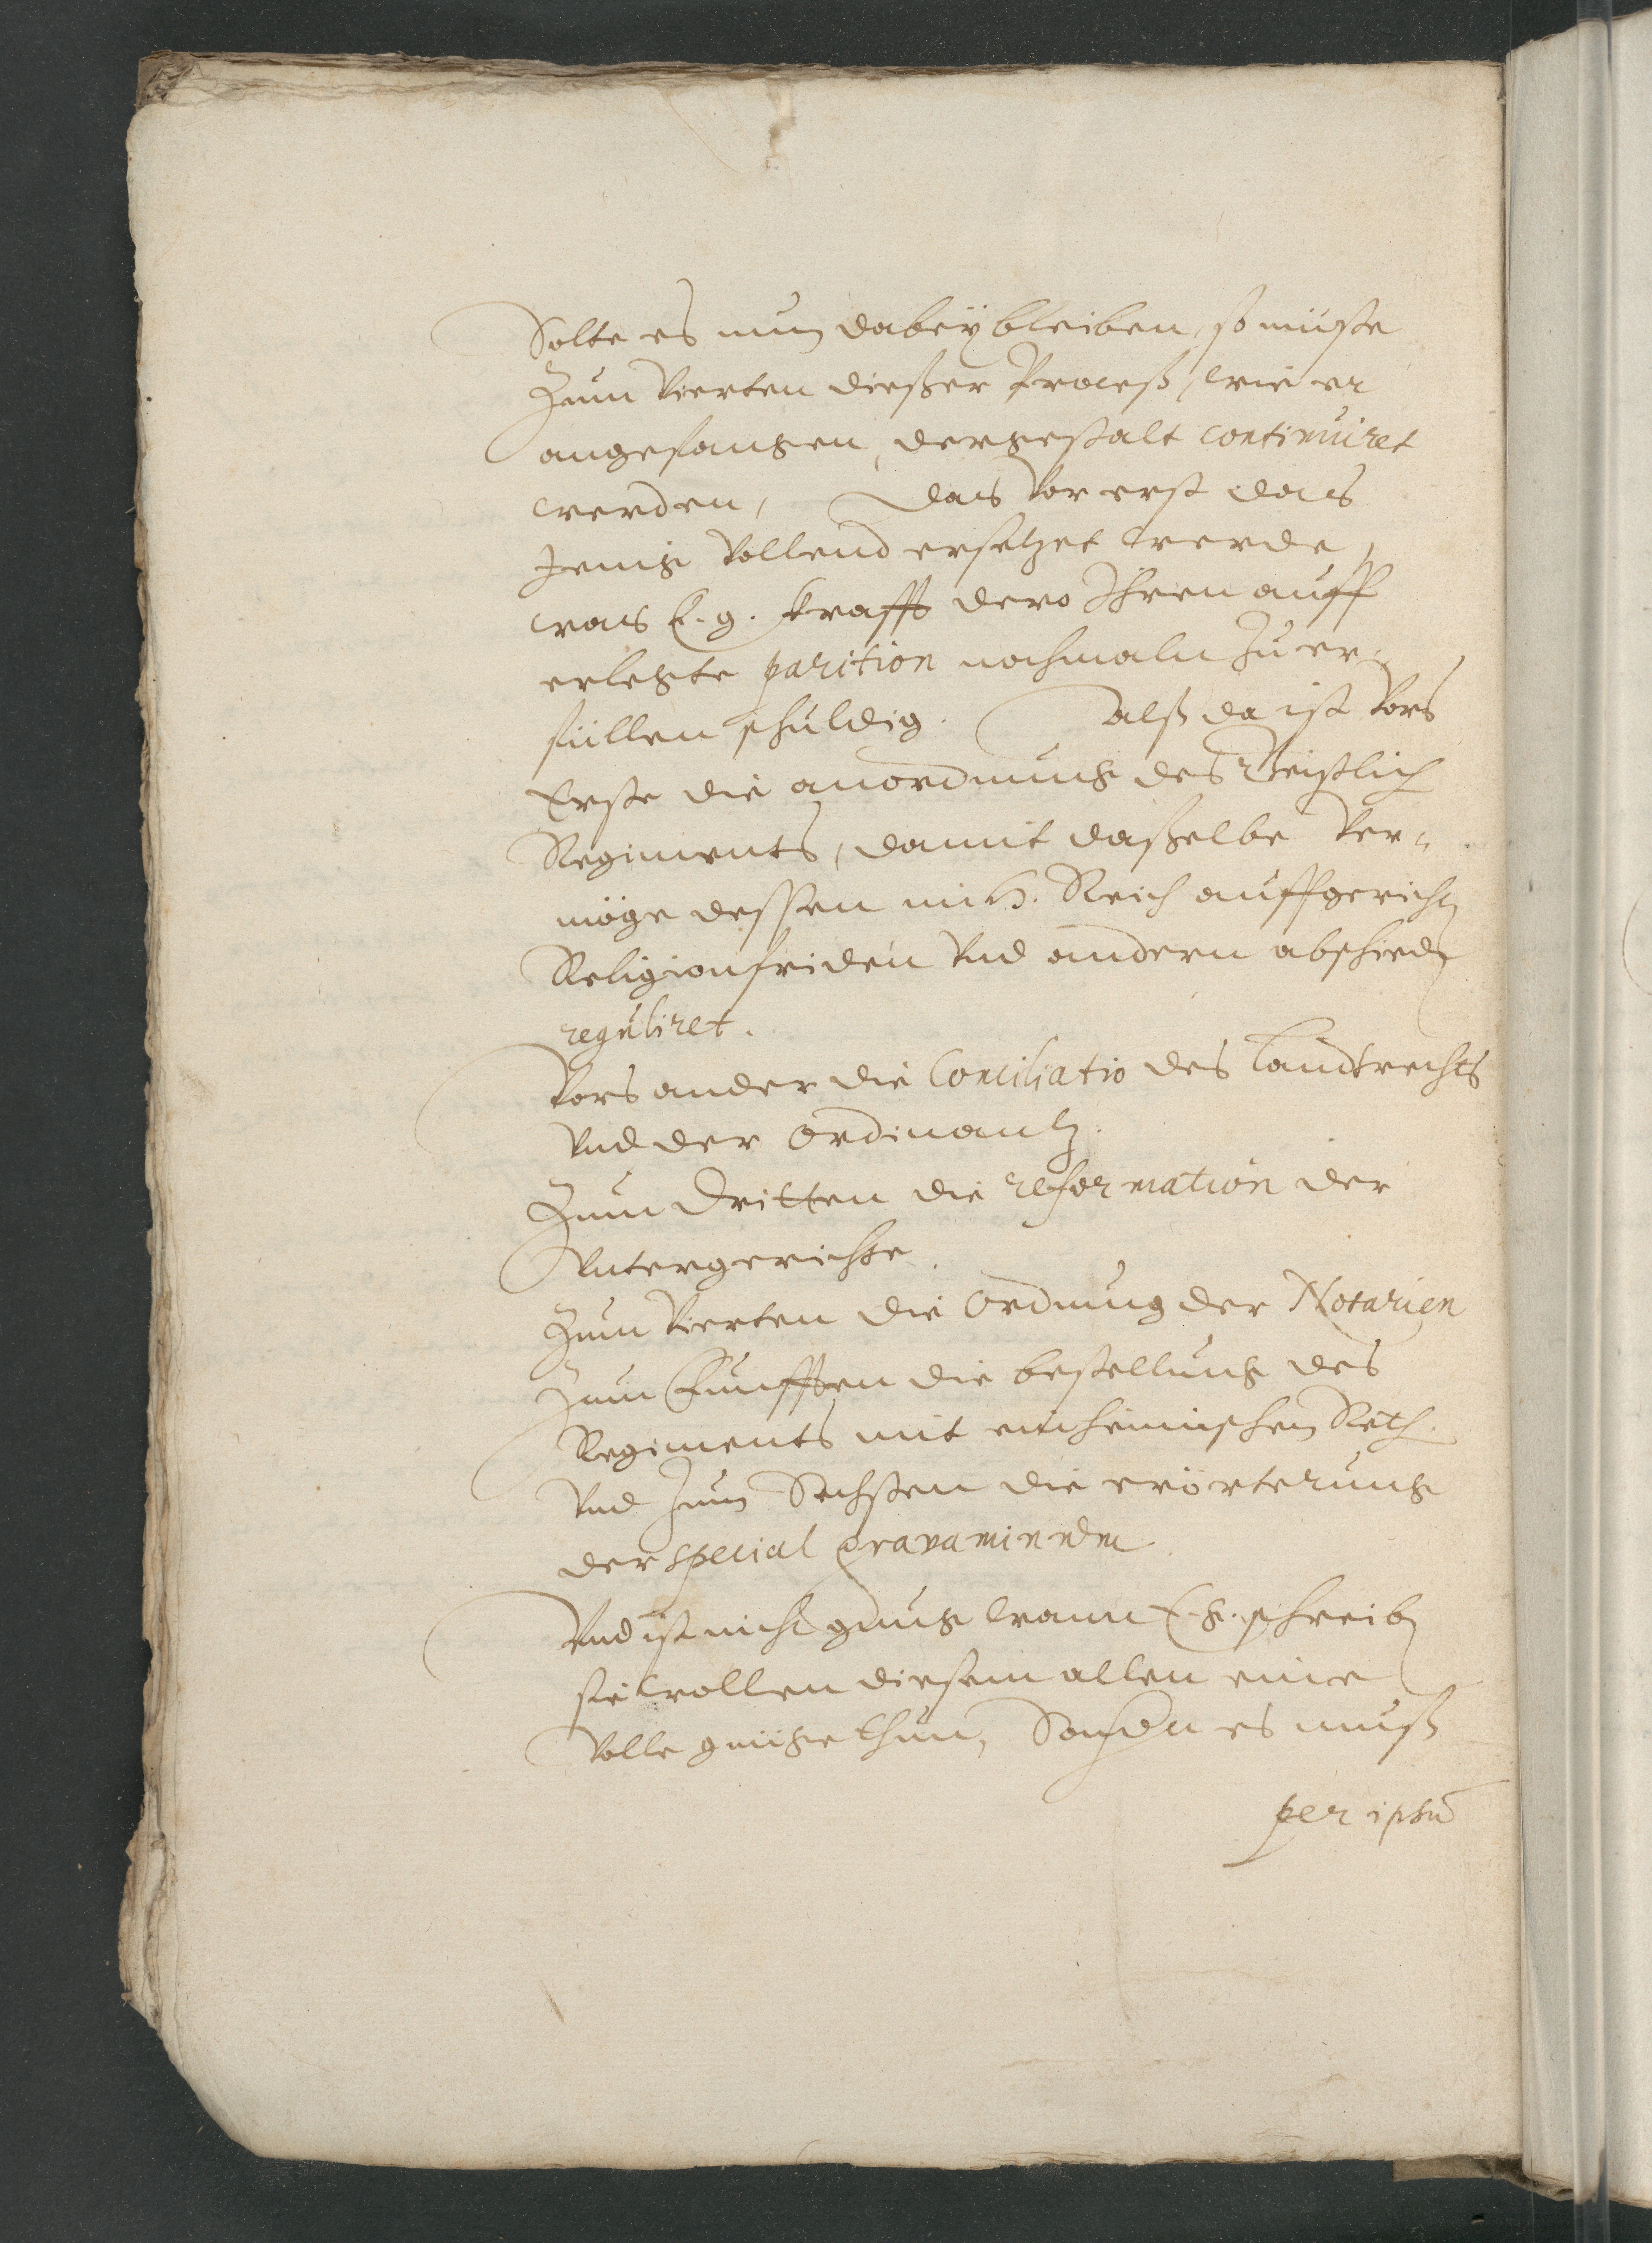 Solte es nun dabeÿ bleiben, so müste
Zum Vierten dießer Proceß, wie er
angefangen, dergestalt continuiret
werden, das vor erst das
Jenige vollend ersetzet werde,
was E. g. krafft dero Ihren auff
erlegte parition nochmaln Zu er-
füllen schuldig. Alß da ist vors
Erste die anordnung des Geistlich
Regiments, damit daßelbe ver-
möge dessen im H. Reich auffgericht
Religionfriden vnd andern abschieden
reguliret.
Vors ander die Conciliatio des Landtrechts
vnd der Ordinantz.
Zum Dritten die reformation der
Vntergerichte.
Zum Vierten die Ordnung der Notarien
Zum Funfften die bestellung des
Regiments mit einheimischen Reth.
Vnd Zum Sechsten die erörterung
der special gravaminum
Vnd ist nicht gnug wann E. g. schreiben
sie wollen diesem allen eine
volle gnüge thun, Sondern es muß
per ipsū